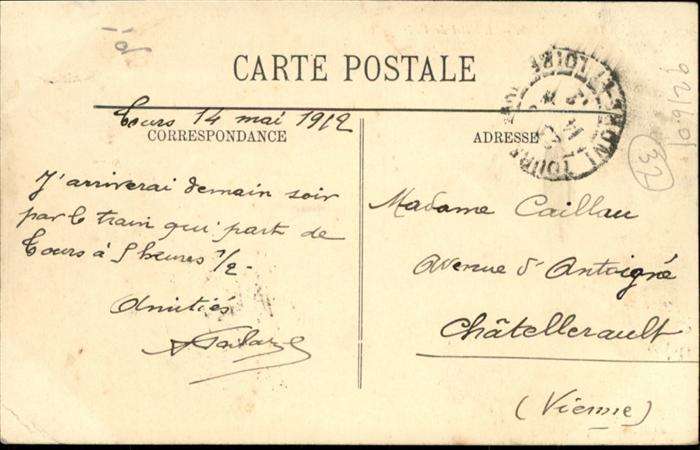 CARTE POSTALE
Tours 14 mai 1912
CORRESPONDANCE
ADRESSE
J'arriverai demain soir
par le train qui part de
Tours à 5 heures 1/2-
Amitiés
Madame Caillau
Avenue d'Antoigné
Châtellerault
(Vienne)
TOURS
LOIRE
32